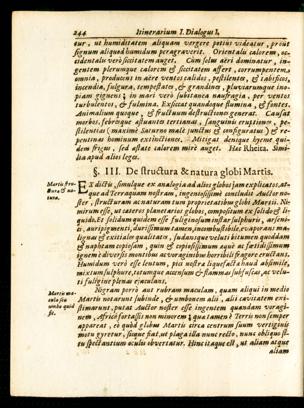 244 Itinerarium I. Dialogus I.
tur, ut humiditatem aliquam vergere potius videatur, priùs
signum aliquod humidum peragraverit. Orientali calorem, oc-
cidentalis verò siccitatem auget. Cum solus aëri dominatur, in-
gentem plerumque calorem & siccitatem affert, corrumpentem
omnia, producens in aëre ventos calidos, pestilentes, & tabificos,
incendia, fulgura, tempestates, & grandines, pluviarumque ino-
piam gignens; in mari verò subitanea naufragia, per ventos
turbulentos, & fulmina. Exsiccat quandoque flumina, & fontes.
Animalium quoque, & fructuum destructionem generat. Causat
morbos, febresque æstuantes tertianas, sanguinis eruptiones, pe-
stilentias (maxime Saturno malè junctus & configuratus) & re-
pentinas hominum extinctiones. Mitigat denique hyeme qui-
dem frigus, sed æstate calorem mirè auget. Hæc Rheita. Simi-
lia apud alios leges.
§. III. De structura & natura globi Martis.
Martis stru-
ctura & na-
tura.
Ex dictis, simulque ex analogia ad alios globos jam explicatos, at-
que ad Terraquum nostrum, ingentissimè concludit Auctor no-
ster, structuram ac naturam tum proprietatibus globi Martii. Ni-
mirum esse, ut cæteros planetarios globos, compositum ex solido & li-
quido. Et solidum quidem esse fuliginosum instar sulphuris, arseni-
ci, auripigmenti, durissimum tamen, incombustibile, evaporans ma-
lignas & exitiales qualitates, sudansque veluti bitumen quoddam
& naphtam copiosam, quin & copiosissimum atque ac fœtidissimum
ignem è diversis montibus ac voraginibus horribili fragore eructans.
Humidum verò esse lentum, pix nostra liquefacta simile,
mixtum sulphure, totumque accensum & flammas subfuscas, ac velu-
ti fuligine plenas ejaculans.
Martis ma-
cula seu
umbo quid
sit.
Nigram porrò aut rubram maculam, quam aliqui in medio
Martis notarunt subinde, & umbonem alii, alii cavitatem exi-
stimarunt, putat Auctor noster esse ingentem quandam voragi-
nem, Africà fortassis non minorem; quæ tamen è Terris non semper
appareat, eò quòd globus Martis circa centrum suum vertiginis
motu gyretur, sicque fiat, ut plaga illa nunc recto, nunc obliquo si-
tu spectantium oculis obvertatur. Hinc itaque est, ut aliam atque
aliam